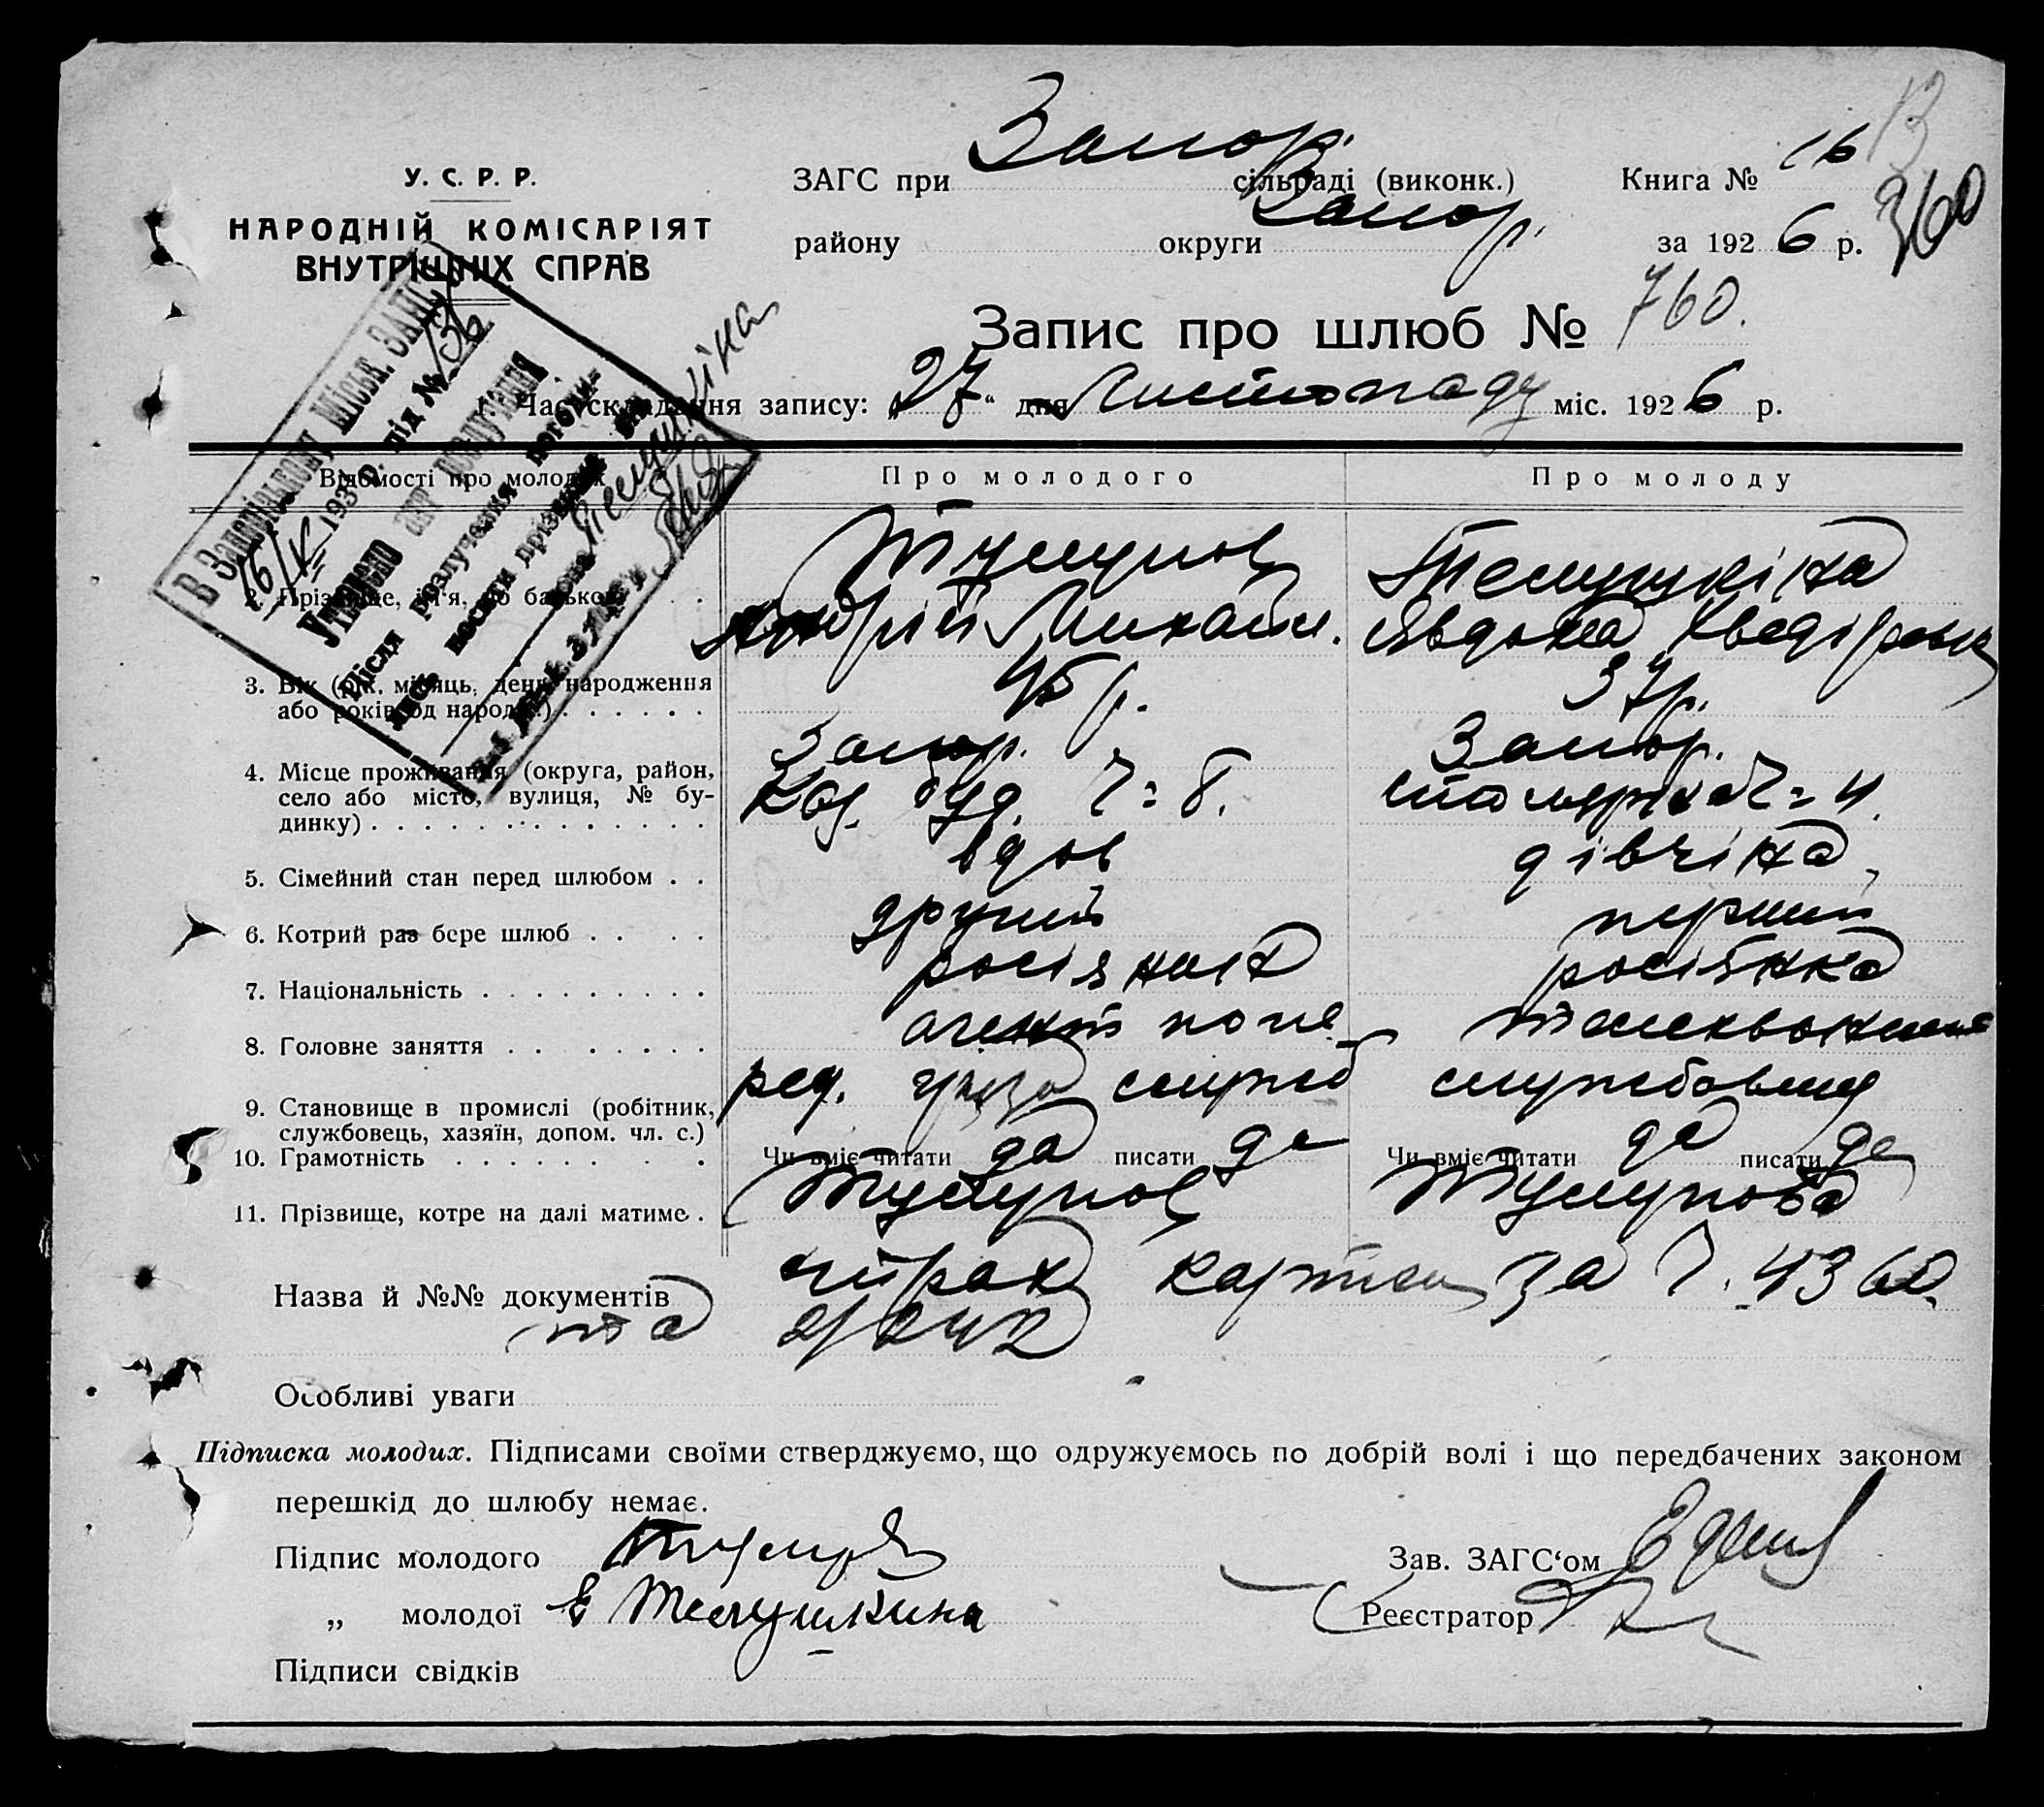 У. С. Р. Р.
НАРОДНІЙ КОМІСАРІЯТ
ВНУТРІШНІХ СПРАВ
ЗАГС при Запор. сільраді (виконк.) Книга № 16
району округи Запор. за 1926 р.
360
Запис про шлюб № 760.
1. Час складання запису: „27“ дня Листопаду міс. 1926 р.
В Запорізькому Міськ. ЗАПС
16/V 193 р. під № 136
Утворено акт розлучення
Після розлучення погоди-
лись носити прізвища він
вона Телушкіна
Відомості про молодих
Про молодого
Про молоду
2. Прізвище, ім'я, по батькові . .
Тулупов Телушкіна
Андрій Михайл. Явдоха Хведірівна
3. Вік (рік, місяць, день народження
або років од народж.) . . . . . .
45 р. 37 р.
4. Місце проживання (округа, район,
село або місто, вулиця, № бу-
динку) . . . . . . . . . . . . . .
Запор. Запор.
буд. Ч = 8. Ч = 4.
5. Сімейний стан перед шлюбом . .
вдов дівчіна
6. Котрий раз бере шлюб . . . .
другий перший
7. Національність . . . . . . . . .
росіянин росіянка
8. Головне заняття . . . . . . .
агент попе
ред.
9. Становище в промислі (робітник,
службовець, хазяїн, допом. чл. с.)
служб службовець
10. Грамотність . . . . . . . .
Чи вміє читати да писати да Чи вміє читати да писати да
11. Прізвище, котре на далі матиме .
Тулупов Тулупова
Назва й №№ документів
страх картки за Ч. 4360.
та
Особливі уваги
Підписка молодих. Підписами своїми стверджуємо, що одружуємось по добрій волі і що передбачених законом
перешкід до шлюбу немає.
Підпис молодого
Зав. ЗАГС‘ом
„ молодої Е Телушкина
Реєстратор
Підписи свідків